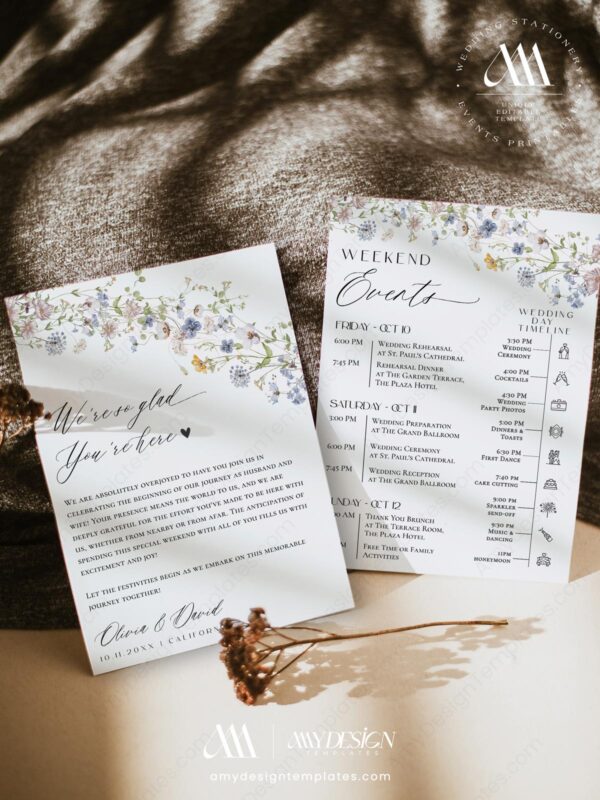 WEDDING STATIONERY
AM
UNIQUE
EDITABLE
TEMPLATES
EVENTS PRINTABLES
We're so glad
You're here
We are absolutely overjoyed to have you join us in
celebrating the beginning of our journey as husband and
wife! Your presence means the world to us, and we are
deeply grateful for the effort you've made to be here with
us, whether from nearby or from afar. The anticipation of
spending this special weekend with all of you fills us with
excitement and joy!
Let the festivities begin as we embark on this memorable
journey together!
Olivia & David
10.11.20XX | CALIFORN
WEEKEND
Events
FRIDAY - OCT 10
6:00 PM Wedding Rehearsal
at St. Paul's Cathedral
7:45 PM Rehearsal Dinner
at The Garden Terrace,
The Plaza Hotel
SATURDAY - OCT 11
3:00 PM Wedding Preparation
at The Grand Ballroom
6:00 PM Wedding Ceremony
at St. Paul's Cathedral
7:45 PM Wedding Reception
at The Grand Ballroom
UNDAY - OCT 12
00 AM Thank You Brunch
at The Terrace Room,
The Plaza Hotel
PM Free Time or Family
Activities
WEDDING
DAY
TIMELINE
3:30 PM
Wedding
Ceremony
4:00 PM
Cocktails
4:30 PM
Wedding
Party Photos
5:00 PM
Dinners &
Toasts
6:30 PM
First Dance
7:40 PM
Cake Cutting
9:00 PM
Sparkler
Send-off
9:30 PM
Music &
Dancing
11PM
Honeymoon
AM | AMYDESIGN
TEMPLATES
amydesigntemplates.com